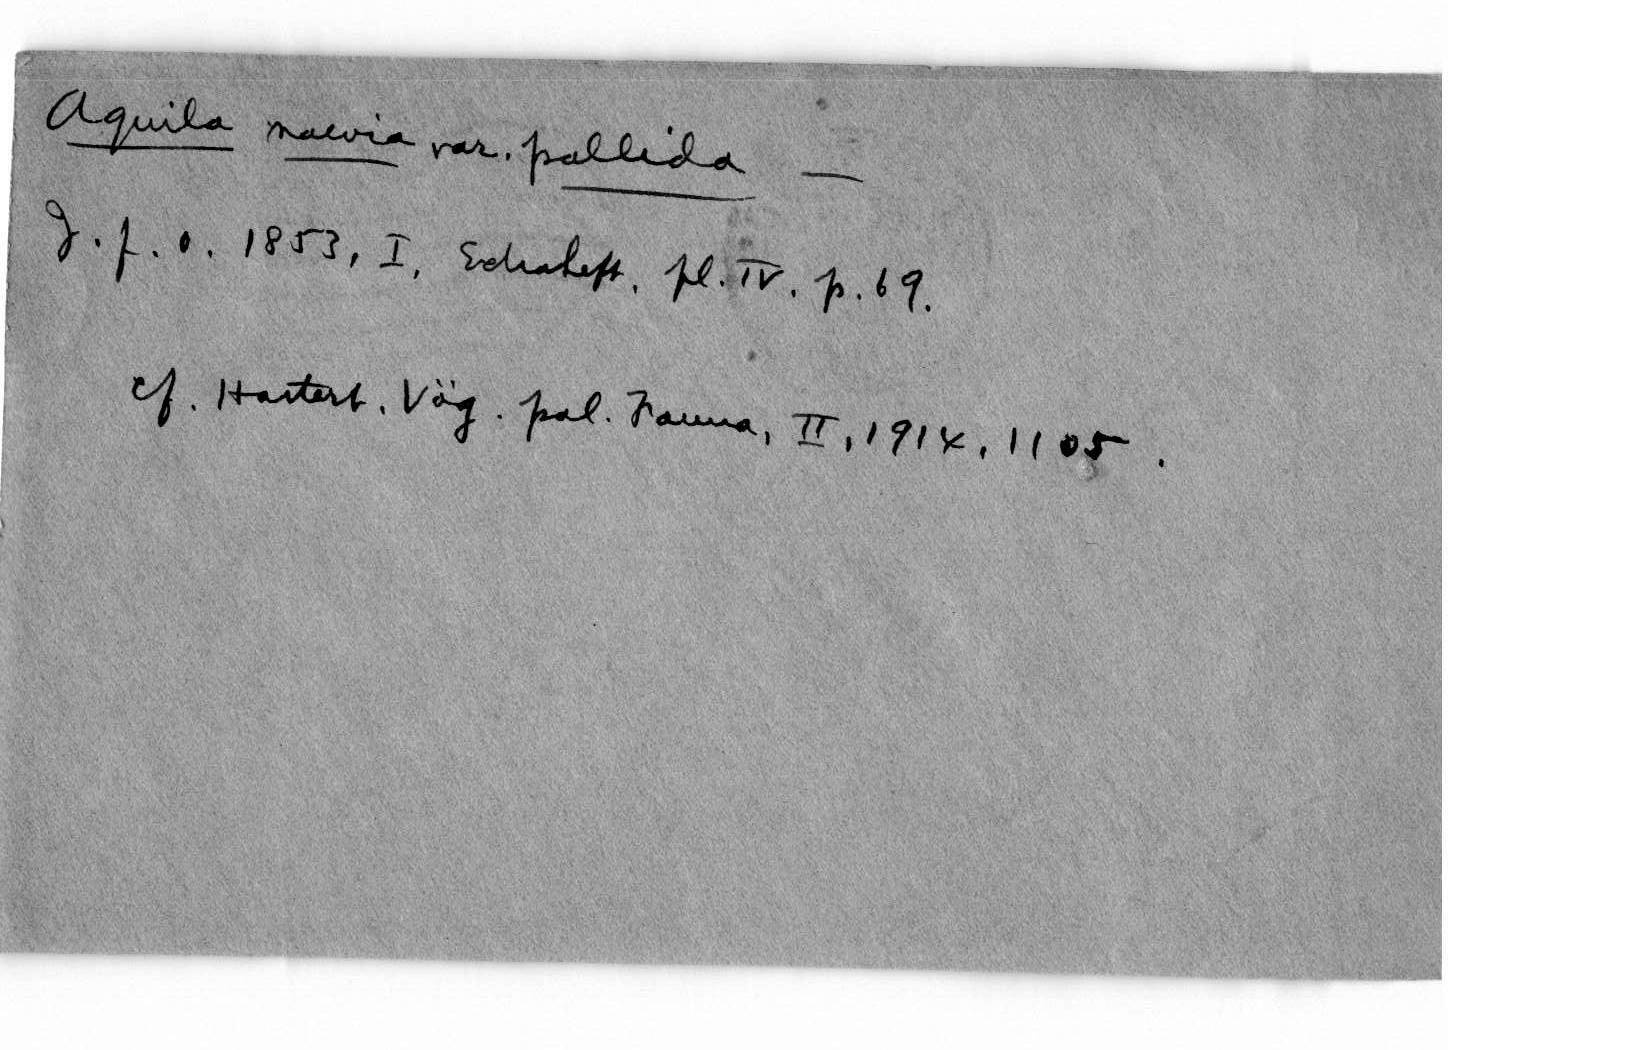 Aquila naevia var. pallida —
J. f. O. 1853, I, Extraheft, pl. IV. p. 69.
cf. Hartert, Vög. pal. Fauna, II, 1914, 1105.